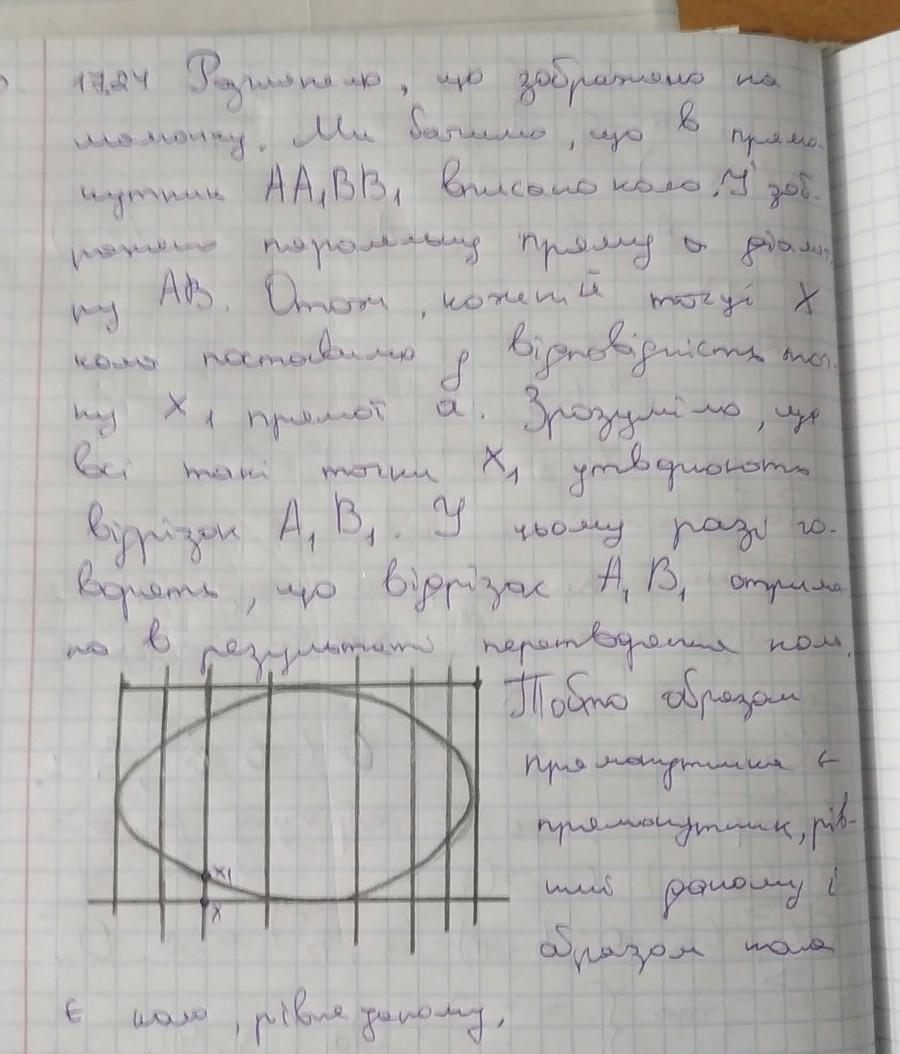 17.24 Розглянемо, що зображено на
малюнку. Ми бачимо, що в прямо-
кутник AA₁BB₁ вписано коло. У зоб-
ражено паралельну пряму а діаме
ру AB. Отож, кожній точці X
кола поставимо у відповідність точ-
ку X₁ прямої а. Зрозуміло, що
всі такі точки X₁ утворюють
відрізок A₁B₁. У цьому разі го-
ворять, що відрізок A₁B₁ отрима
но в результаті перетворення кола.
Тобто образом
прямокутника є
прямокутник, рів-
ний даному і
образом кола
є коло, рівне даному.
X₁
X